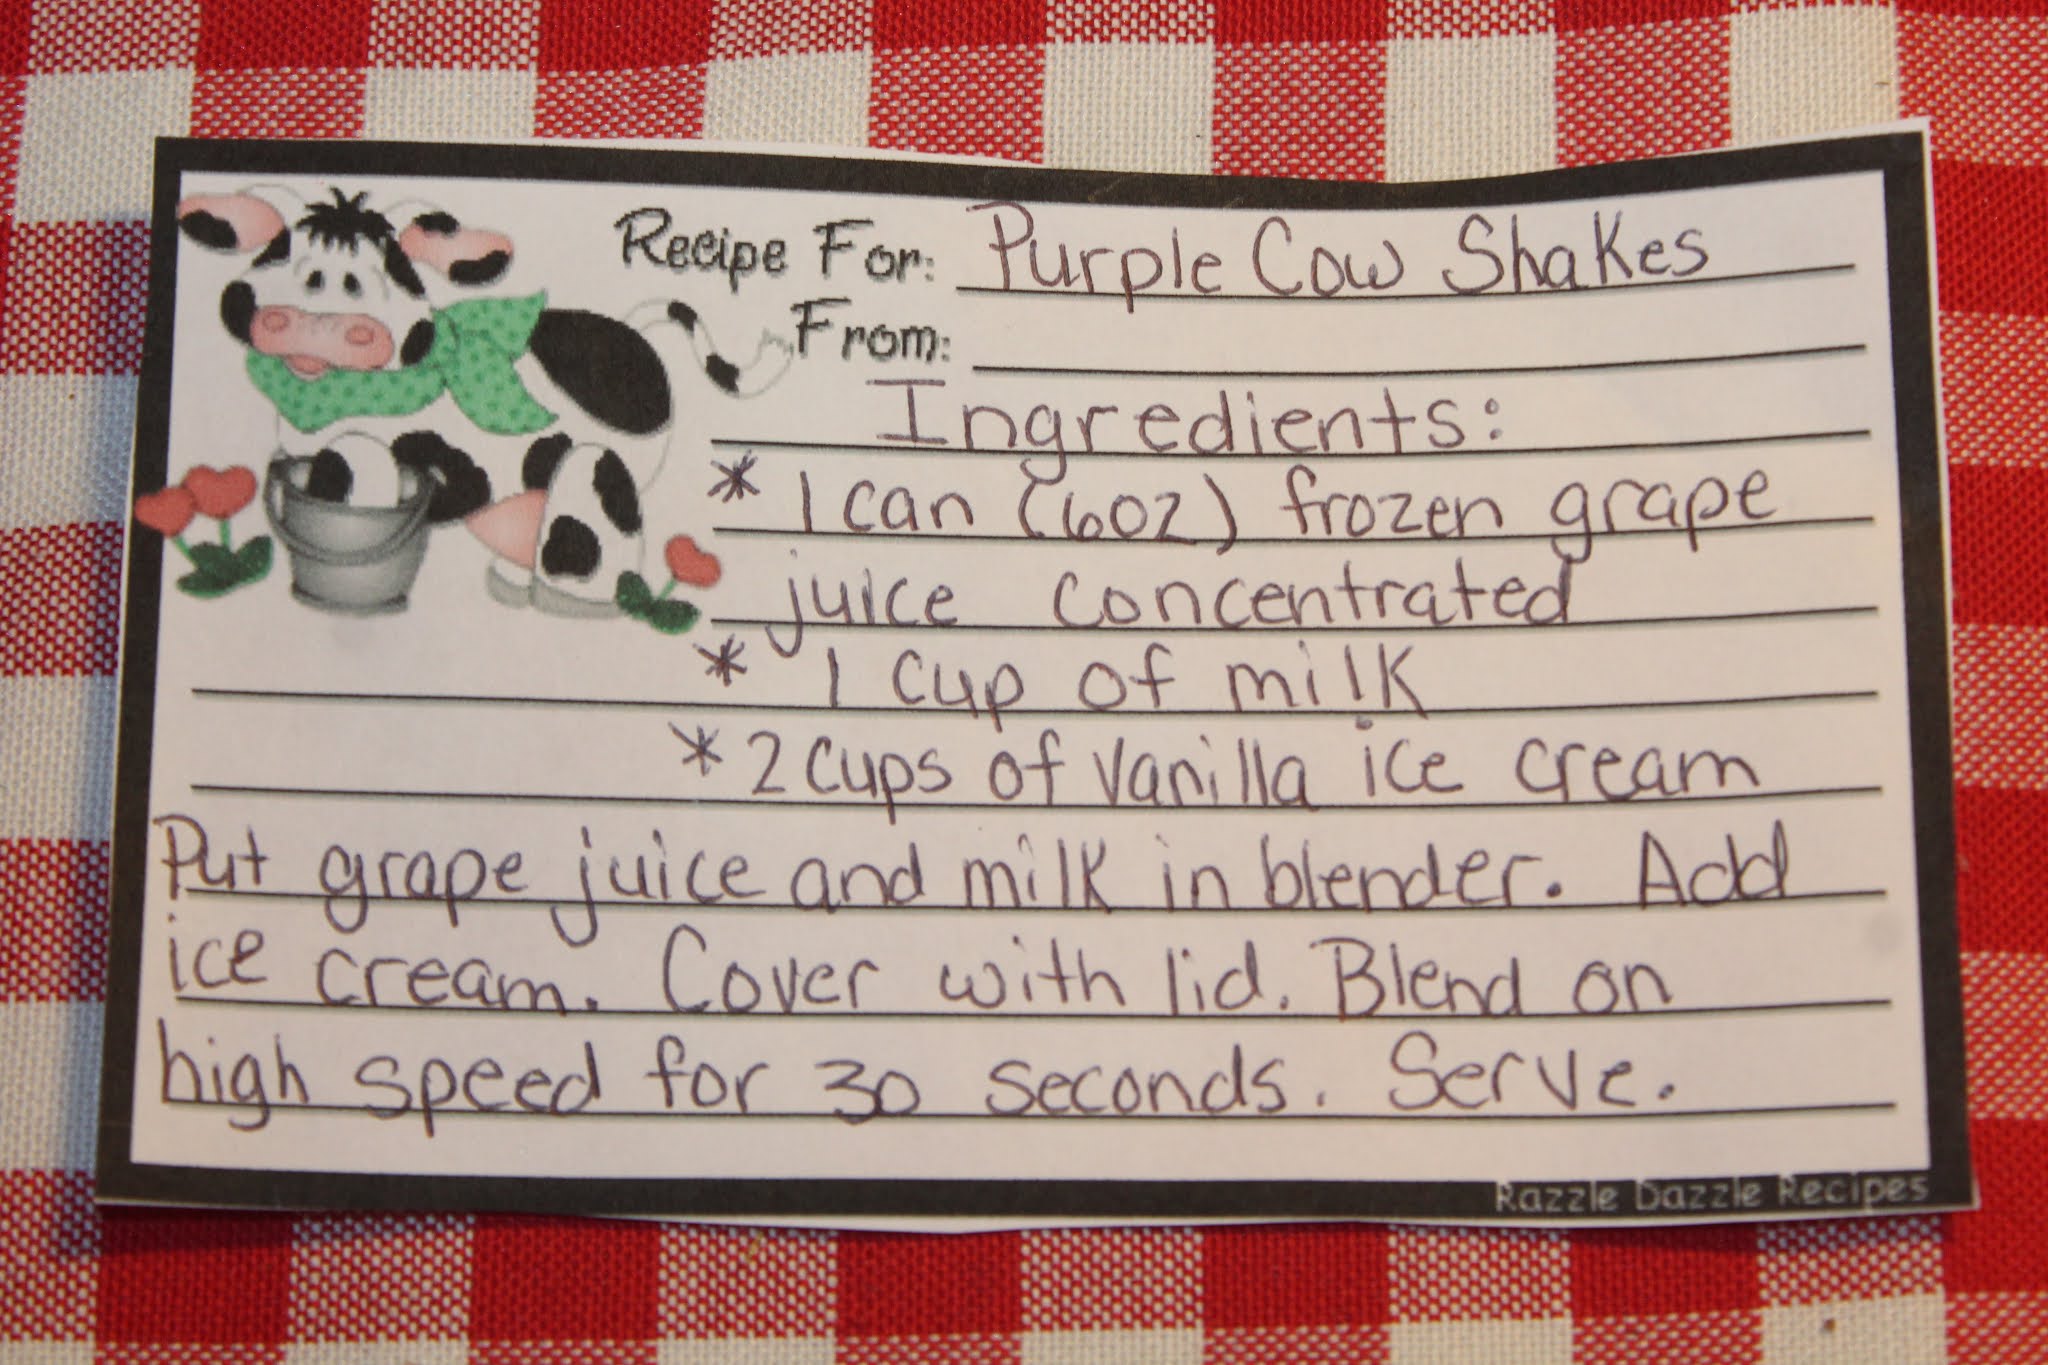 Recipe For: Purple Cow Shakes
From:
Ingredients:
* 1 can (6oz) frozen grape
juice concentrated
* 1 cup of milk
* 2 cups of vanilla ice cream
Put grape juice and milk in blender. Add
ice cream. Cover with lid. Blend on
high speed for 30 seconds. Serve.
Razzle Dazzle Recipes